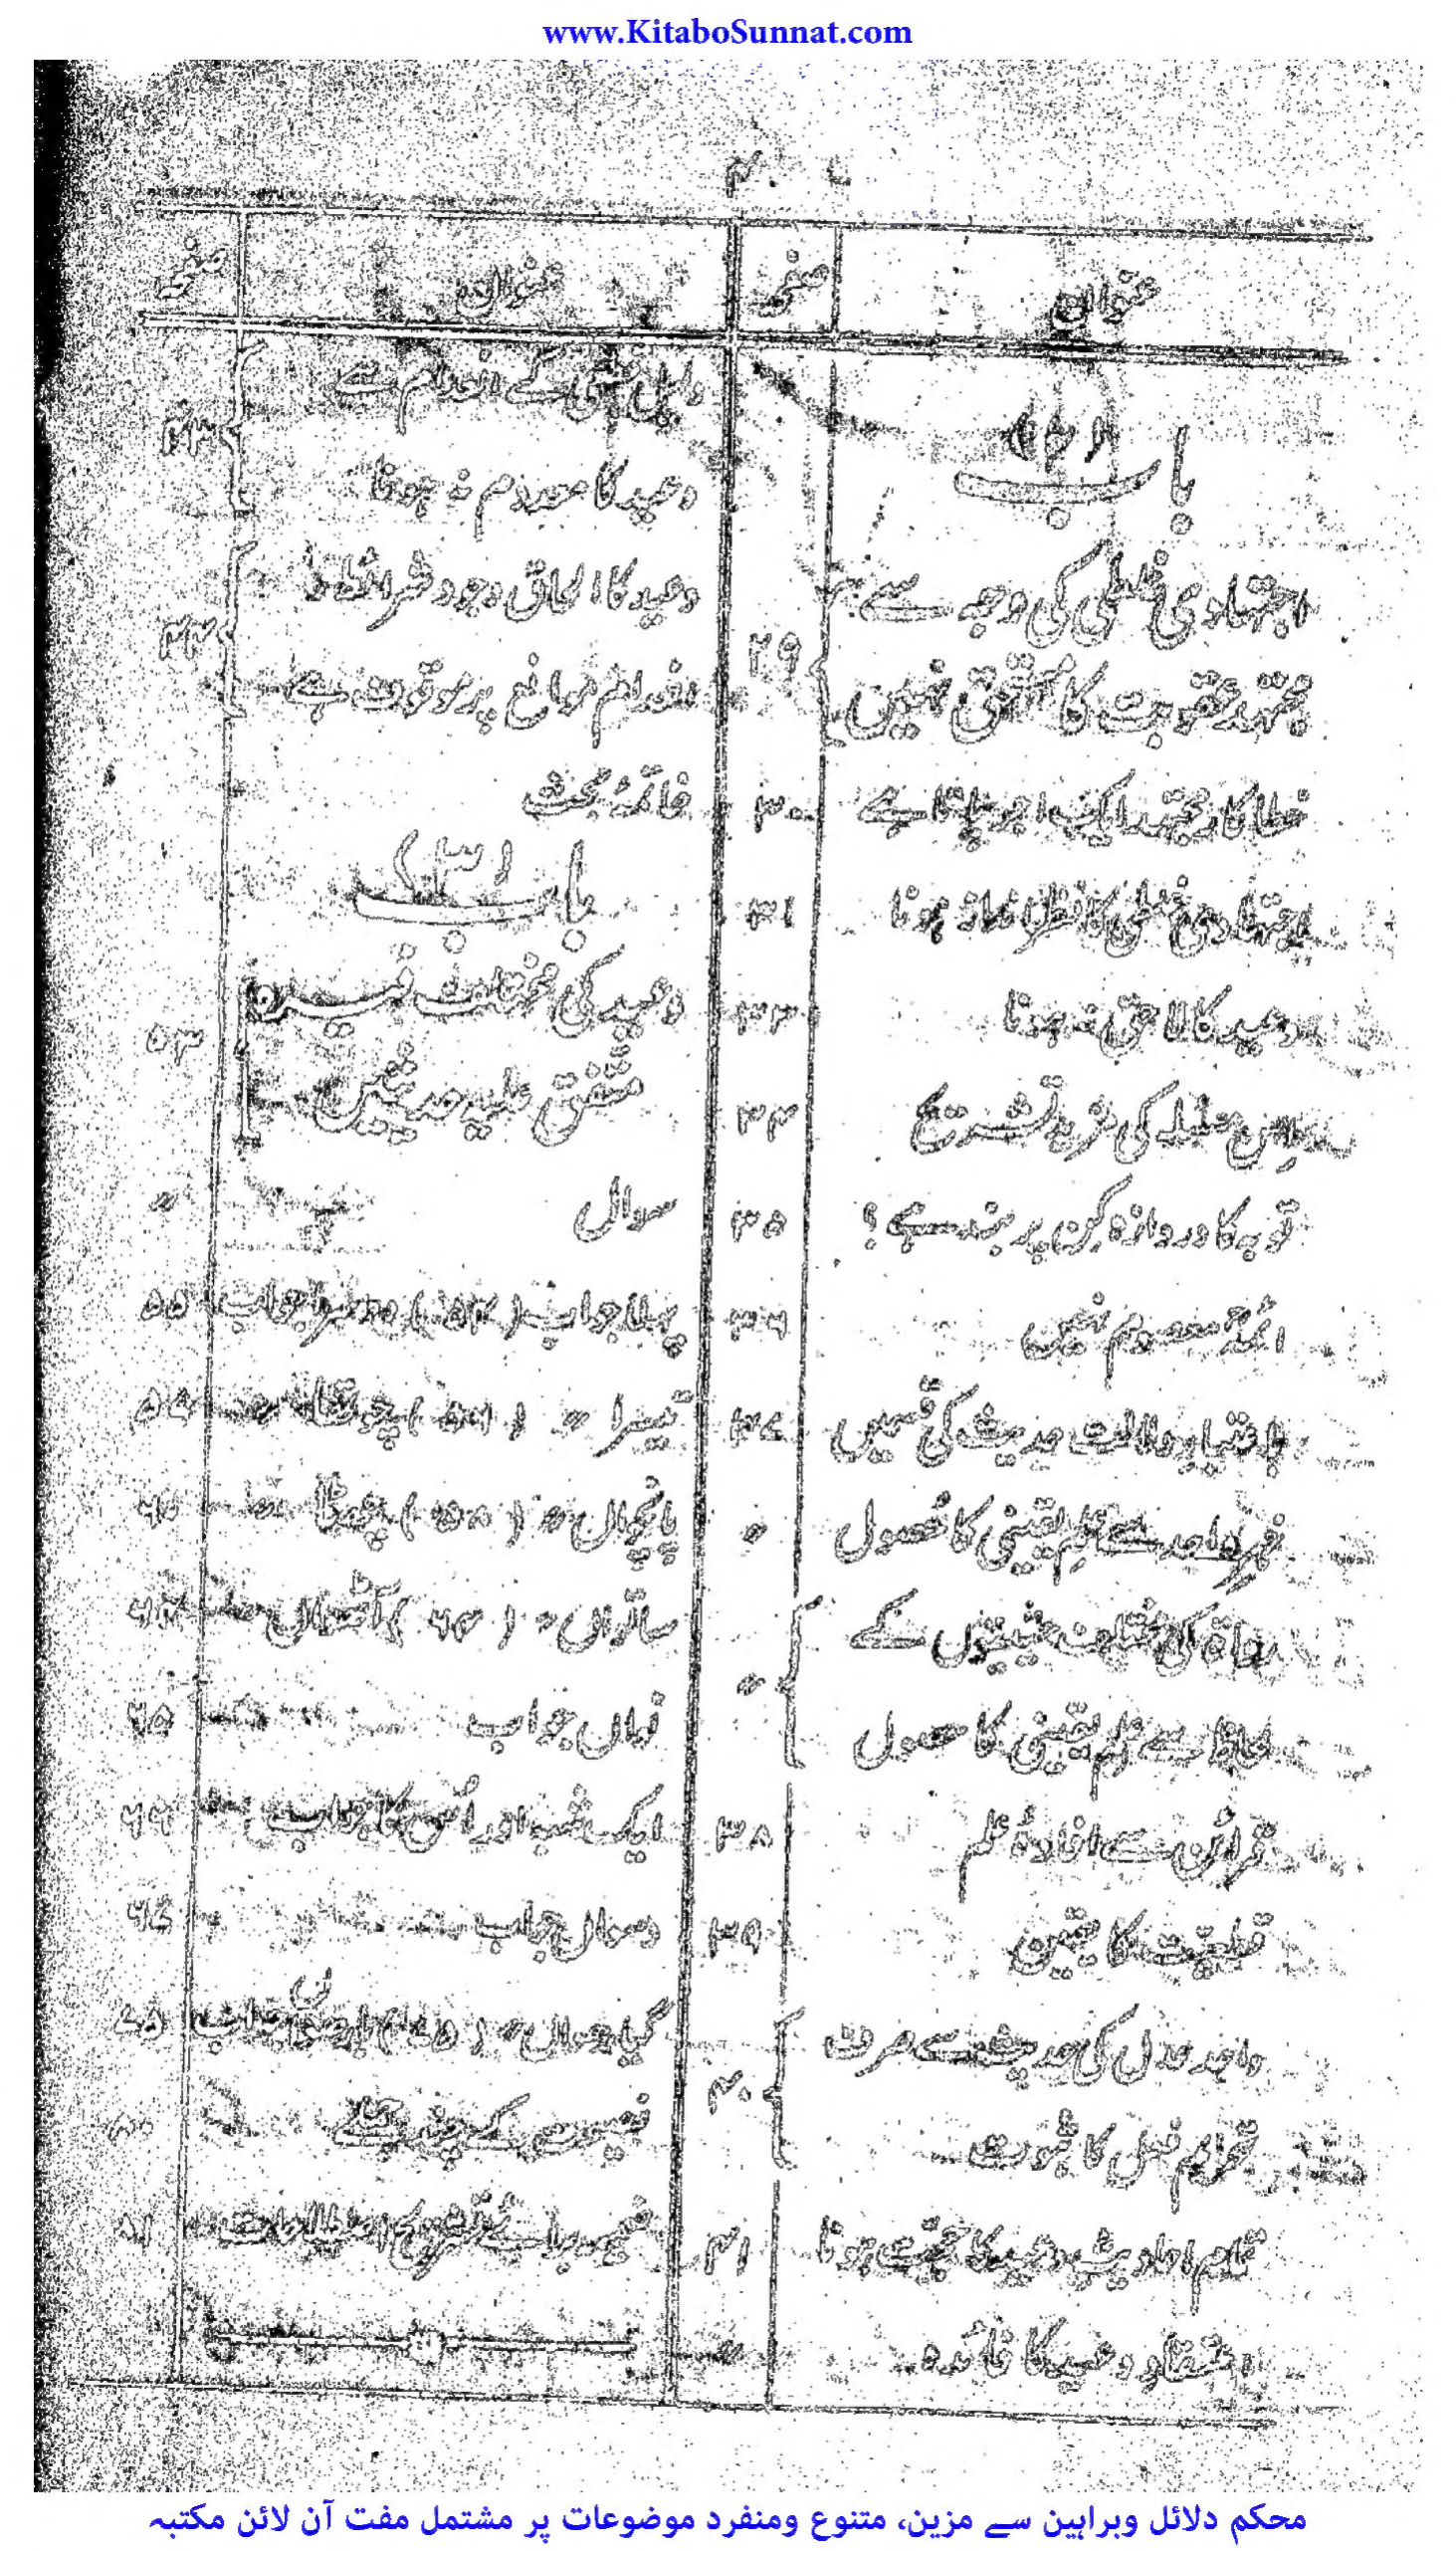 www.KitaboSunnat.com
۴
عنوان صفحہ
باب (۲)
اجتہادی غلطی کی وجہ سے
مجتہد عقوبت کا مستحق نہیں ۲۹
خطا کار مجتہد ایک اجر پاتا ہے ۳۰
اجتہادی غلطی کا نظر انداز ہونا ۳۱
وعید کا لاحق نہ ہونا ۳۳
اس مسئلہ کی مزید تشریح ۳۴
توبہ کا دروازہ کن پر بند ہے؟ ۳۵
ائمہ معصوم نہیں ۳۶
باعتبار دلالت حدیث کی قسمیں ۳۷
خبر واحد سے علم یقینی کا حصول 〃
رواۃ کی مختلف حیثیتوں کے
لحاظ سے علم یقینی کا حصول 〃
قرائن سے افادۂ علم ۳۸
قطعیت کا یقین ۳۹
واحد عدل کی حدیث سے صرف
تحریم فعل کا ثبوت ۴۰
تمام احادیث وعید کا حجت ہونا ۴۱
اعتقاد وعید کا فائدہ 〃
عنوان صفحہ
دلیل قطعی کے انعدام سے
وعید کا معدوم نہ ہونا ۴۳
وعید کا الحاق وجود شرائط و
انعدام موانع پر موقوف ہے ۴۴
خاتمۂ بحث
باب (۳)
وعید کی مختلف فیہ و
متفق علیہ حدیثیں ۵۳
سوال 〃
پہلا جواب (۵۴) دوسرا جواب ۵۵
تیسرا 〃 (۵۶) چوتھا 〃 ۵۷
پانچواں 〃 (۵۸) چھٹا 〃 ۶۰
ساتواں 〃 (۶۳) آٹھواں 〃 ۶۴
نواں جواب ۶۵
ایک شبہ اور اُس کا جواب ۶۶
دسواں جواب
گیارھواں 〃 بارھواں جواب ۷۵
کے چند
ضمیمہ برائے تشریح اصطلاحات ۸۱
محکم دلائل وبراہین سے مزین، متنوع ومنفرد موضوعات پر مشتمل مفت آن لائن مکتبہ